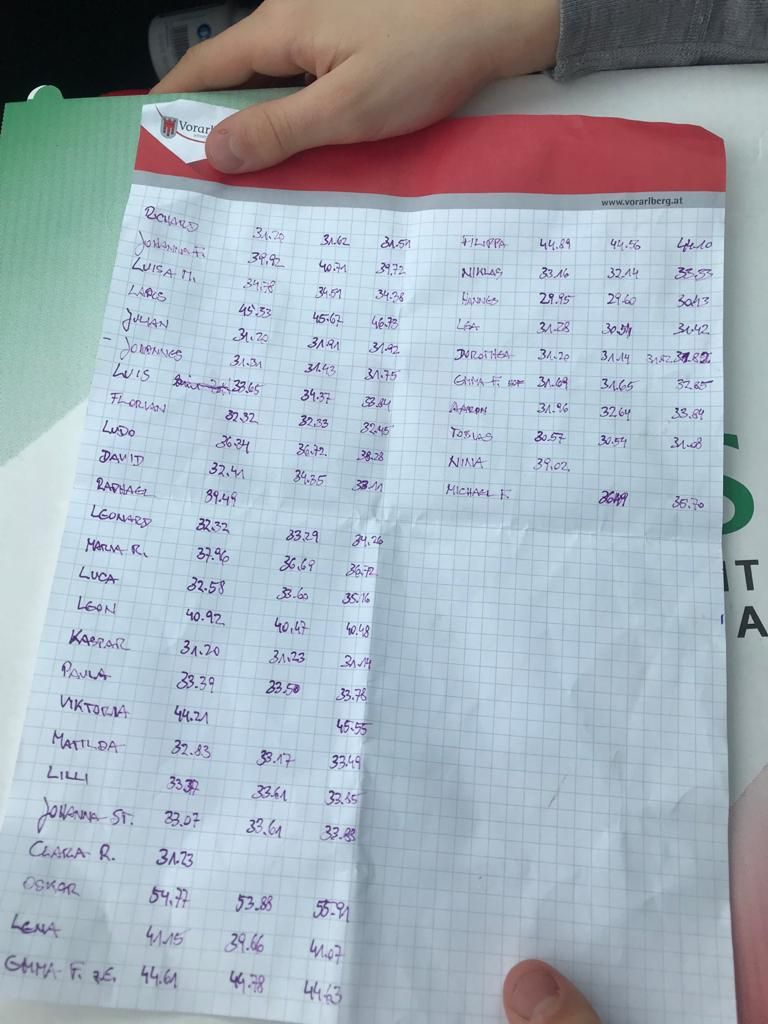 Vorarl
www.vorarlberg.at
RICHARD 31.20 31.62 31.51
JOHANNA F. 39.92 40.71 39.72
LUISA M. 34.78 34.51 34.38
LARS 45.33 45.67 46.73
JULIAN 31.20 31.91 31.92
- JOHANNES 31.31 31.43 31.75
LUIS 33.65 34.37 33.84
FLORIAN 32.32 32.33 32.45
LUDO 36.34 36.72 38.28
DAVID 32.41 34.35 33.11
RAPHAEL 39.49
LEONARD 32.32 33.29 34.26
MARIA R. 37.96 36.69 36.72
LUCA 32.58 33.60 35.16
LEON 40.92 40.47 40.48
KASPAR 31.20 31.23 31.14
PAULA 33.39 33.50 33.78
VIKTORIA 44.21 45.55
MATILDA 32.83 33.17 33.49
LILLI 33.37 33.61 33.85
JOHANNA ST. 33.07 33.61 33.88
CLARA R. 31.23
OSKAR 54.77 53.88 55.91
LENA 41.15 39.66 41.07
EMMA F. z.E. 44.61 44.78 44.63
FILIPPA 44.89 44.56 44.10
NIKLAS 33.16 32.14 33.53
HANNES 29.95 29.60 30.13
LEA 31.28 30.54 31.42
DOROTHEA 31.20 31.14 31.82
EMMA F. HOF 31.69 31.65 32.85
AARON 31.96 32.64 33.84
TOBIAS 30.57 30.54 31.08
NINA 39.02
MICHAEL F. 36.49 35.70
S
IT
A